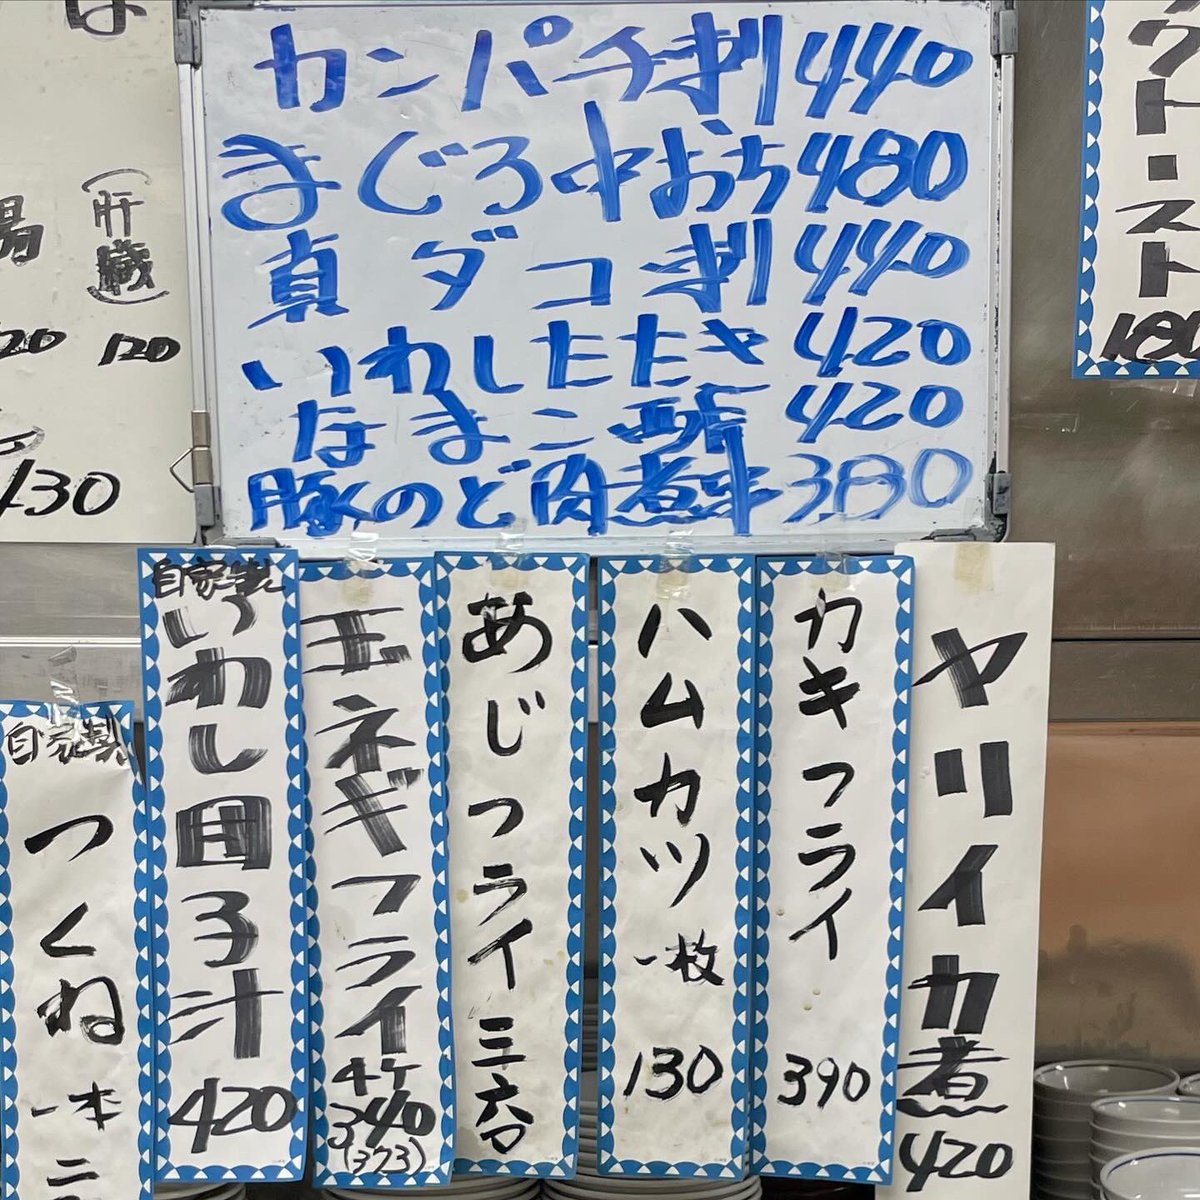 カンパチ刺 440
まぐろ中おち 480
真ダコ刺 440
いわしたたき 420
なまこ酢 420
豚のど肉煮 380
(肝臓)
120
130
クト・スト
180
ヤリイカ煮
420
カキフライ
390
ハムカツ
一枚
130
あじフライ
三六〇
玉ネギフライ
4ケ
340
(373)
自家製
いわし団子汁
420
自家製
つくね
一本
二